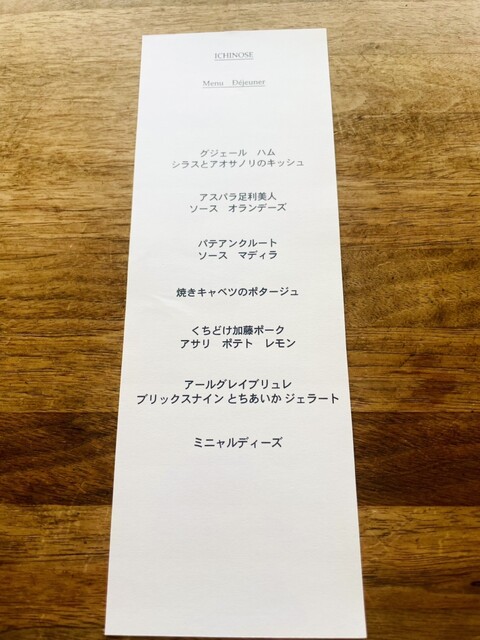 ICHINOSE
Menu Déjeuner
グジェール ハム
シラスとアオサノリのキッシュ
アスパラ足利美人
ソース オランデーズ
パテアンクルート
ソース マディラ
焼きキャベツのポタージュ
くちどけ加藤ポーク
アサリ ポテト レモン
アールグレイブリュレ
ブリックスナイン とちあいか ジェラート
ミニャルディーズ